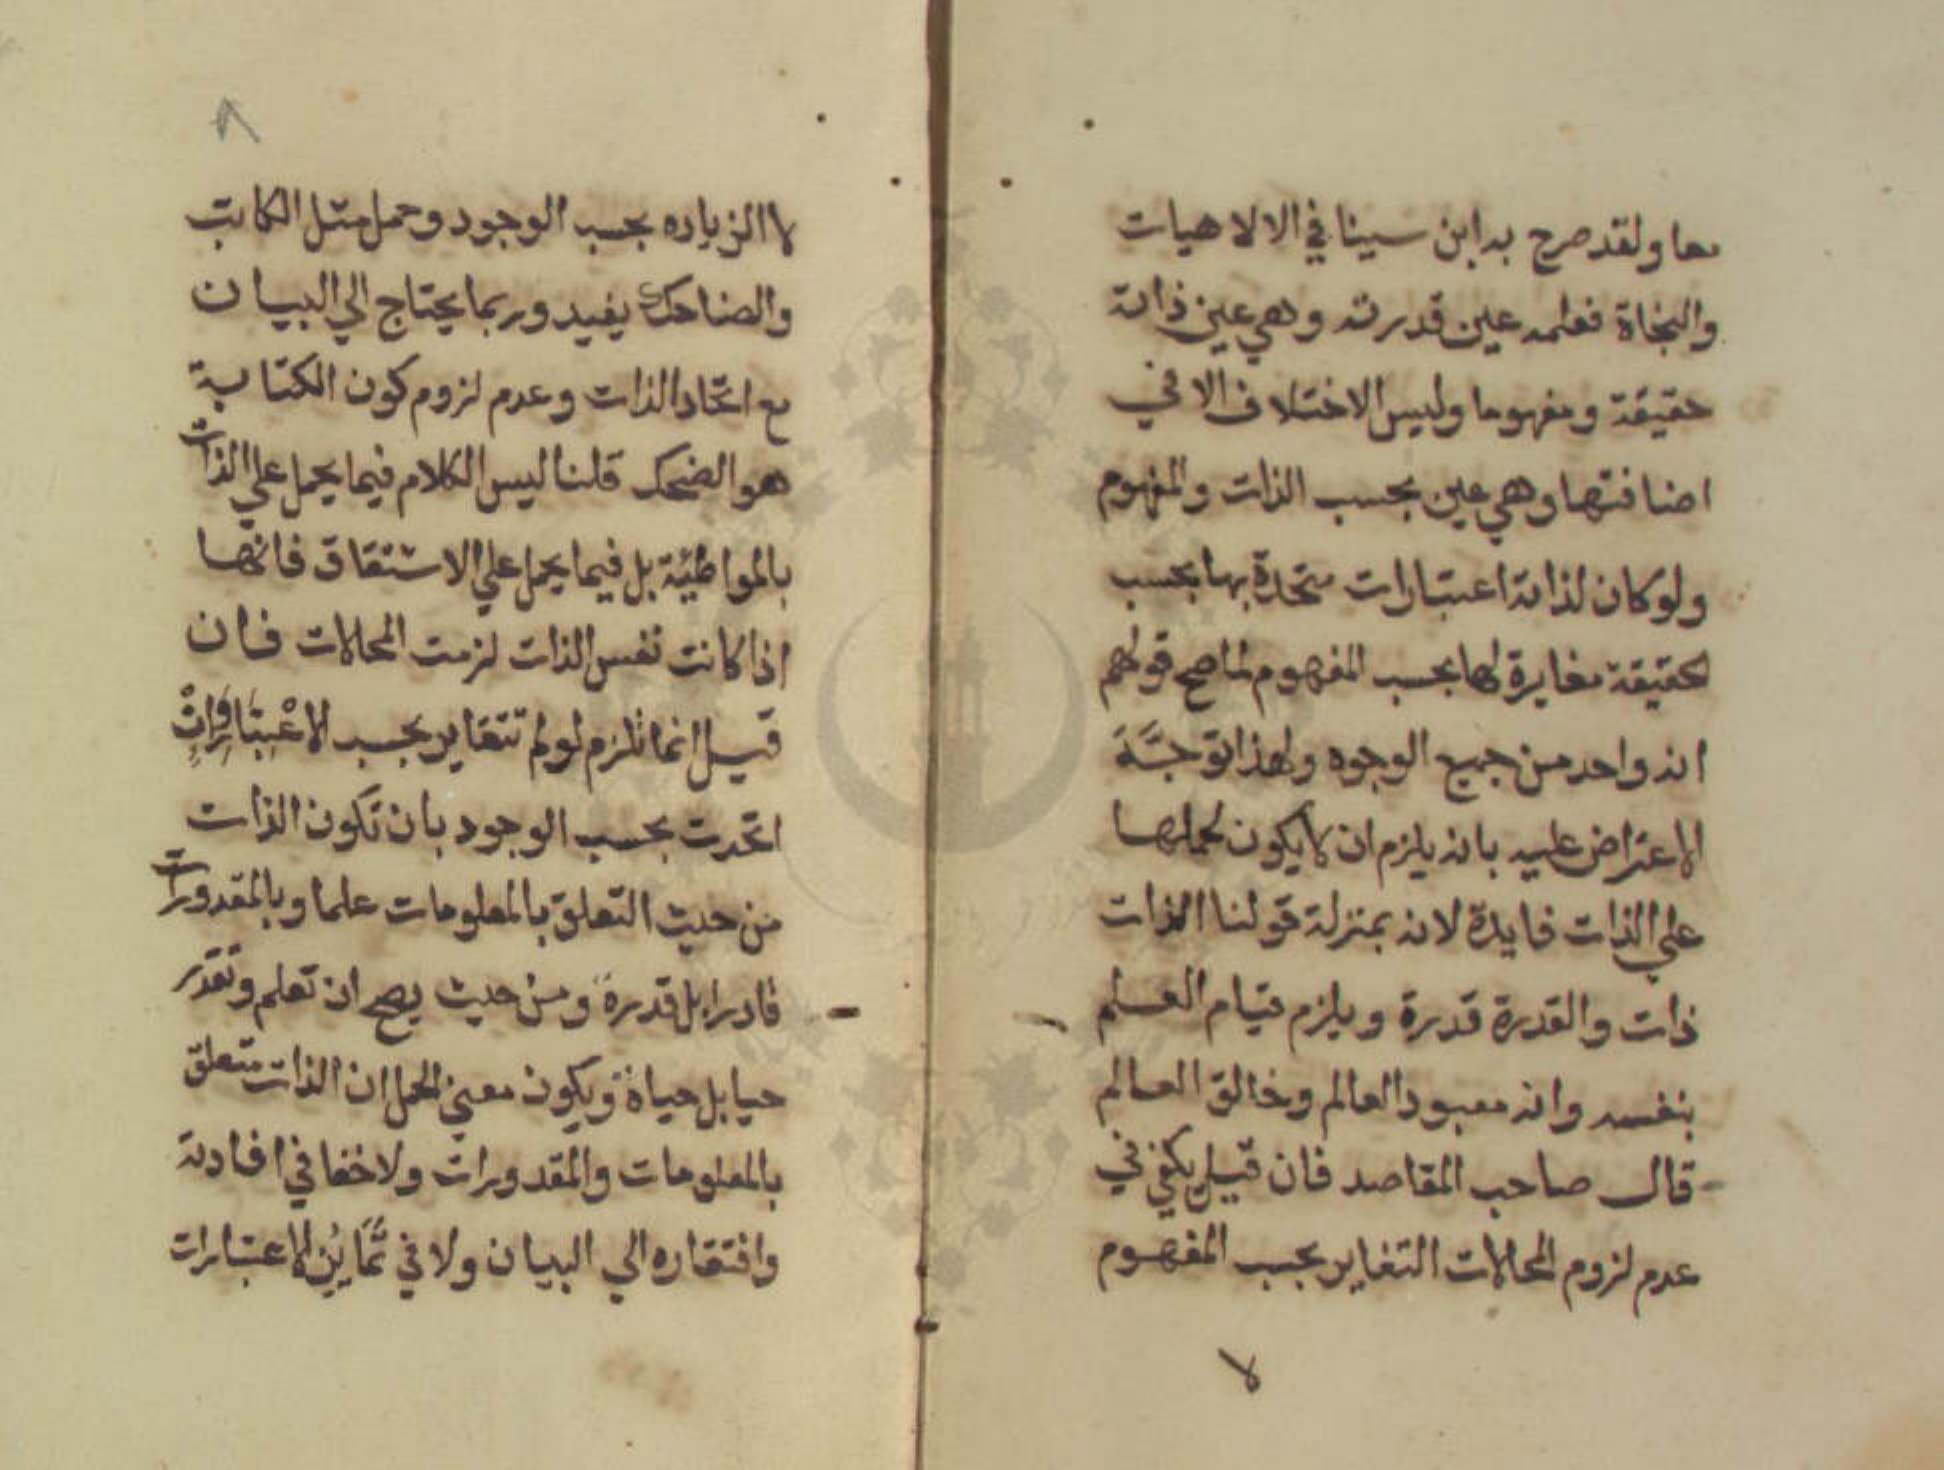 بها ولقد صرح به ابن سينا في الالاهيات
والنجاة فعلمه عين قدرته وهي عين ذاته
حقيقة ومفهوما وليس الاختلاف الا في
اضافتها وهي عين بحسب الذات والمفهوم
ولو كان لذاته اعتبارات متحدة بها بحسب
الحقيقة مغايرة لها بحسب المفهوم لما صح قولهم
انه واحد من جميع الوجوه ولهذا توجَّهَ
الاعتراض عليه بانه يلزم ان لا يكون لحملها
علي الذات فايدة لانه بمنزلة قولنا الذات
ذات والقدرة قدرة ويلزم قيام العلم
بنفسه وانه معبود العالم وخالق العالم
قال صاحب المقاصد فان قيل يكفي في
عدم لزوم المحالات التغاير بحسب المفهوم
لا
٨
لا الزياده بحسب الوجود وحمل مثل الكاتب
والضاحك يفيد وربما يحتاج الي البيان
مع اتحاد الذات وعدم لزوم كون الكتابة
هو الضحك قلنا ليس الكلام فيما يحمل علي الذات
بالمواطئة بل فيما يحمل علي الاشتقاق فانها
اذا كانت نفس الذات لزمت المحالات فان
قيل انما تلزم لو لم تتغاير بحسب الاعْتبَارات
اتحدت بحسب الوجود بان تكون الذات
من حيث التعلق بالمعلومات علما وبالمقدورات
قادرا بل قدرة ومن حيث يصح ان تعلم وتقدر
حيا بل حياة ويكون معني الحمل ان الذات متعلق
بالمعلومات والمقدورات ولا خفا في افادته
وافتقاره الي البيان ولا في تَّمَايُنِ الاعتبارات